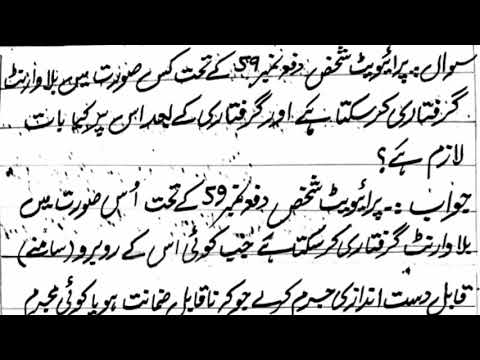 سوال :۔ پرائیویٹ شخص دفعہ نمبر 59 کے تحت کس صورت میں بلا وارنٹ
گرفتاری کر سکتا ہے اور گرفتاری کے بعد اس پر کیا بات
لازم ہے؟
جواب :۔ پرائیویٹ شخص دفعہ نمبر 59 کے تحت اُس صورت میں
بلا وارنٹ گرفتاری کر سکتا ہے جب کوئی اس کے روبرو (سامنے)
قابل دست اندازی جرم کرے جو کہ ناقابل ضمانت ہو یا کوئی مجرم